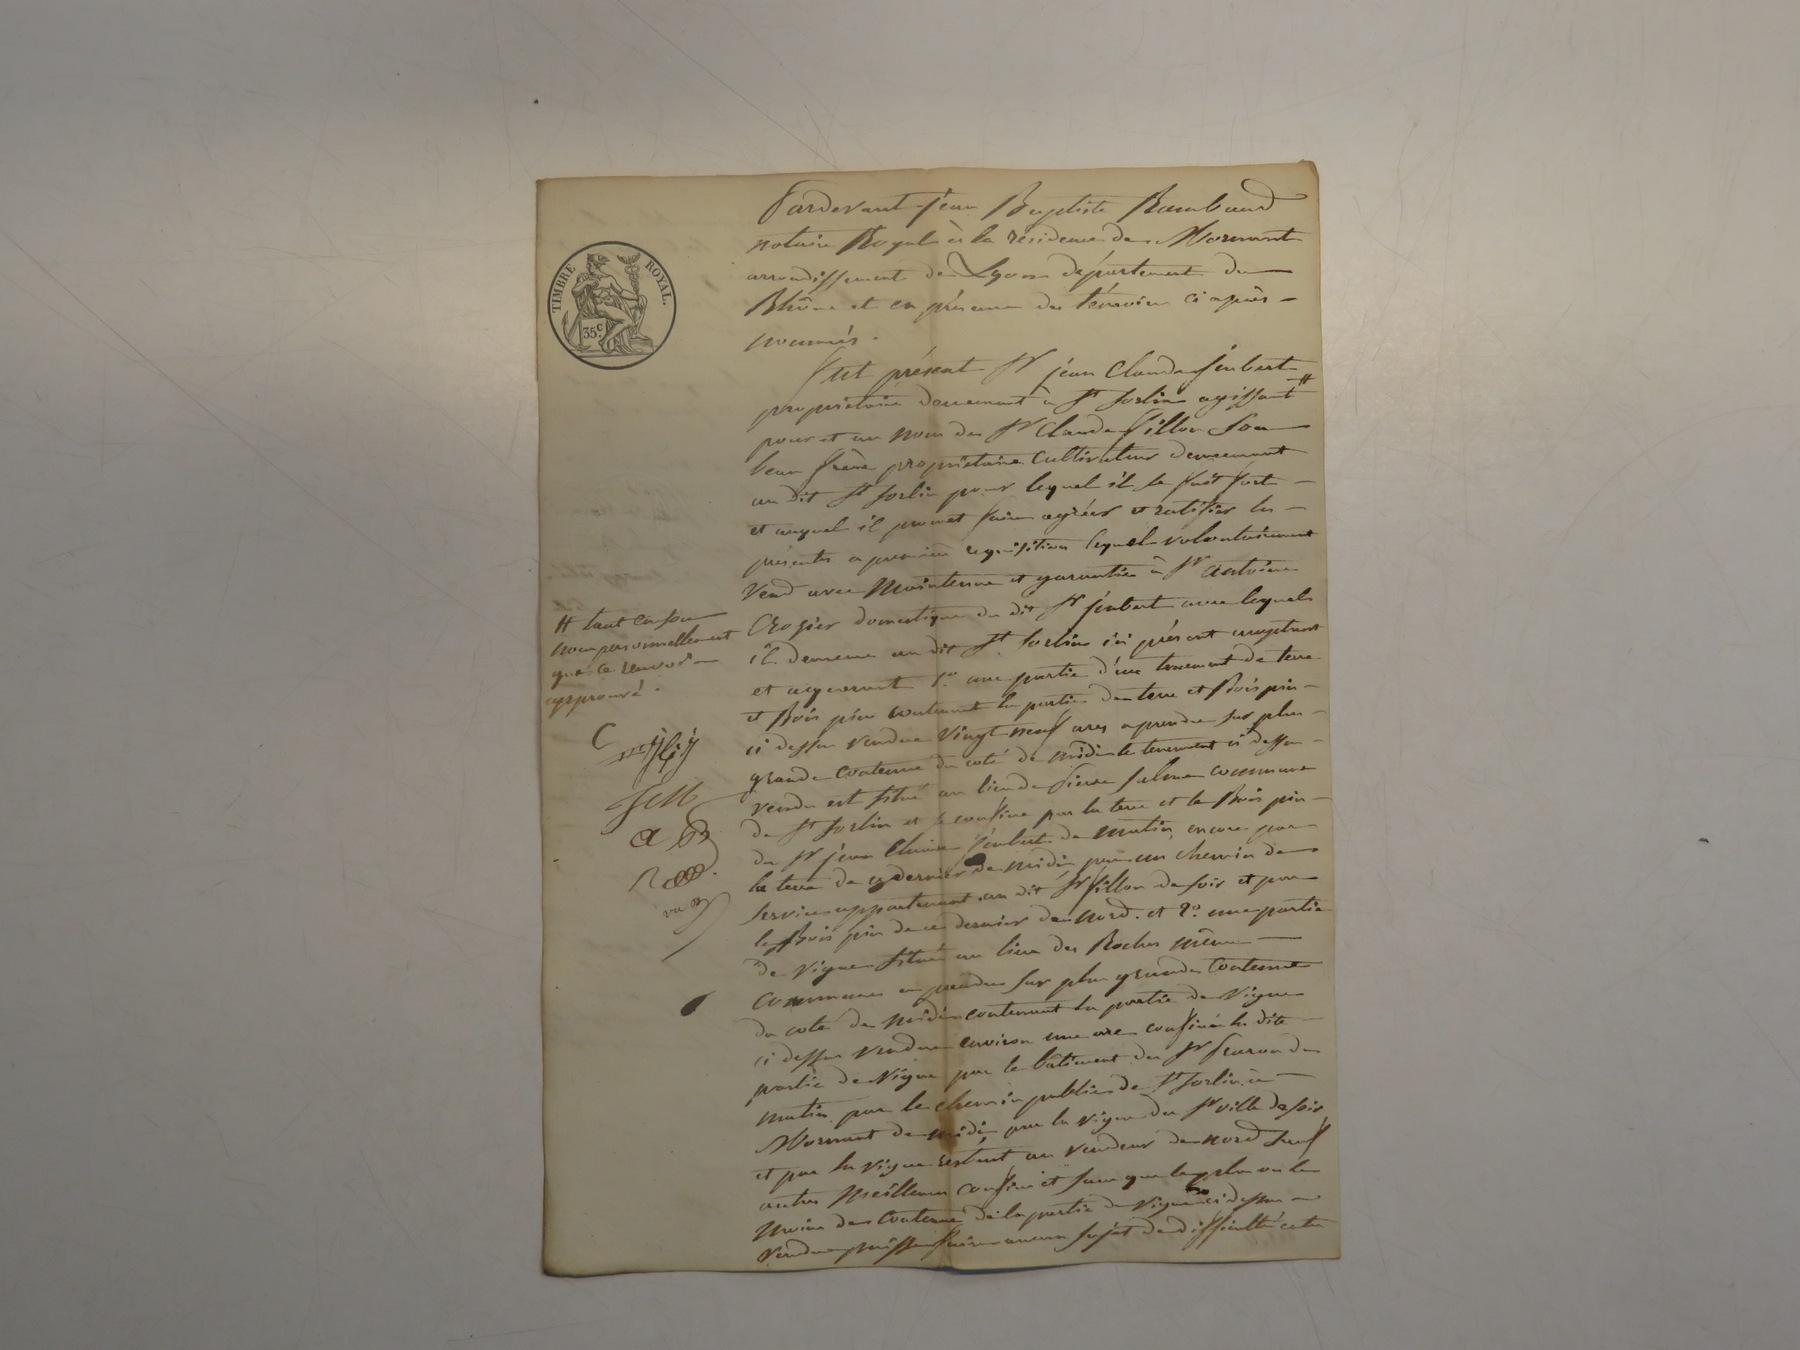 TIMBRE ROYAL.
35c.
Pardevant jean Baptiste Rambaud
notaire Royal à la résidence de Mornant
arrondissement de Lyon département du
Rhône et en présence des témoins ci après
nommés.
fut présent Sr jean Claude jeubert
propriétaire demeurant à St Sorlin agissant #
pour et au nom de Sr Claude fillon Son
beau frère propriétaire Cultivateur demeurant
au dit St Sorlin pour lequel il se fait fort
et auquel il promet faire agréer et ratifier les
présentes a première requisition lequel volontairement
Vend avec Maintenue et garantie à Sr Antoine
Crozier domestique du dit Sr jeubert avec lequel
il demeure au dit St Sorlin ici présent acceptant
et acquerant 1o une partie d'un tenement de terre
et Bois pin contenant la partie de terre et Bois pin
ci dessus vendue vingt neuf ares a prendre sur plus
grande contenue du coté de midi le tenement ci dessus
vendu est situé au lieu de commune
de St Sorlin et se confine par la terre et le Bois pin
du Sr jean jeubert de matin, encore par
la terre de ce dernier de midi par un chemin de
service appartenant au dit Sr fillon de soir et par
le Bois pin de ce dernier de nord. et 2o une partie
de vigne située au lieu des Roches même
Commune a prendre sur plus grande Contenue
du coté de midi contenant la partie de vigne
ci dessus vendue environ une are confinée la dite
partie de vigne par le bâtiment du Sr de
matin par le chemin public de St Sorlin à
Mornant de midi par la vigne du Sr ville de soir
et par la vigne restant au vendeur de nord sauf
autres meilleurs confins et sans que le plus ou le
moins de Contenue de la partie de vigne ci dessus
vendue puisse faire aucun sujet de difficulté entre
# tant en son
nom personnellement
que ce renvoi
approuvé.